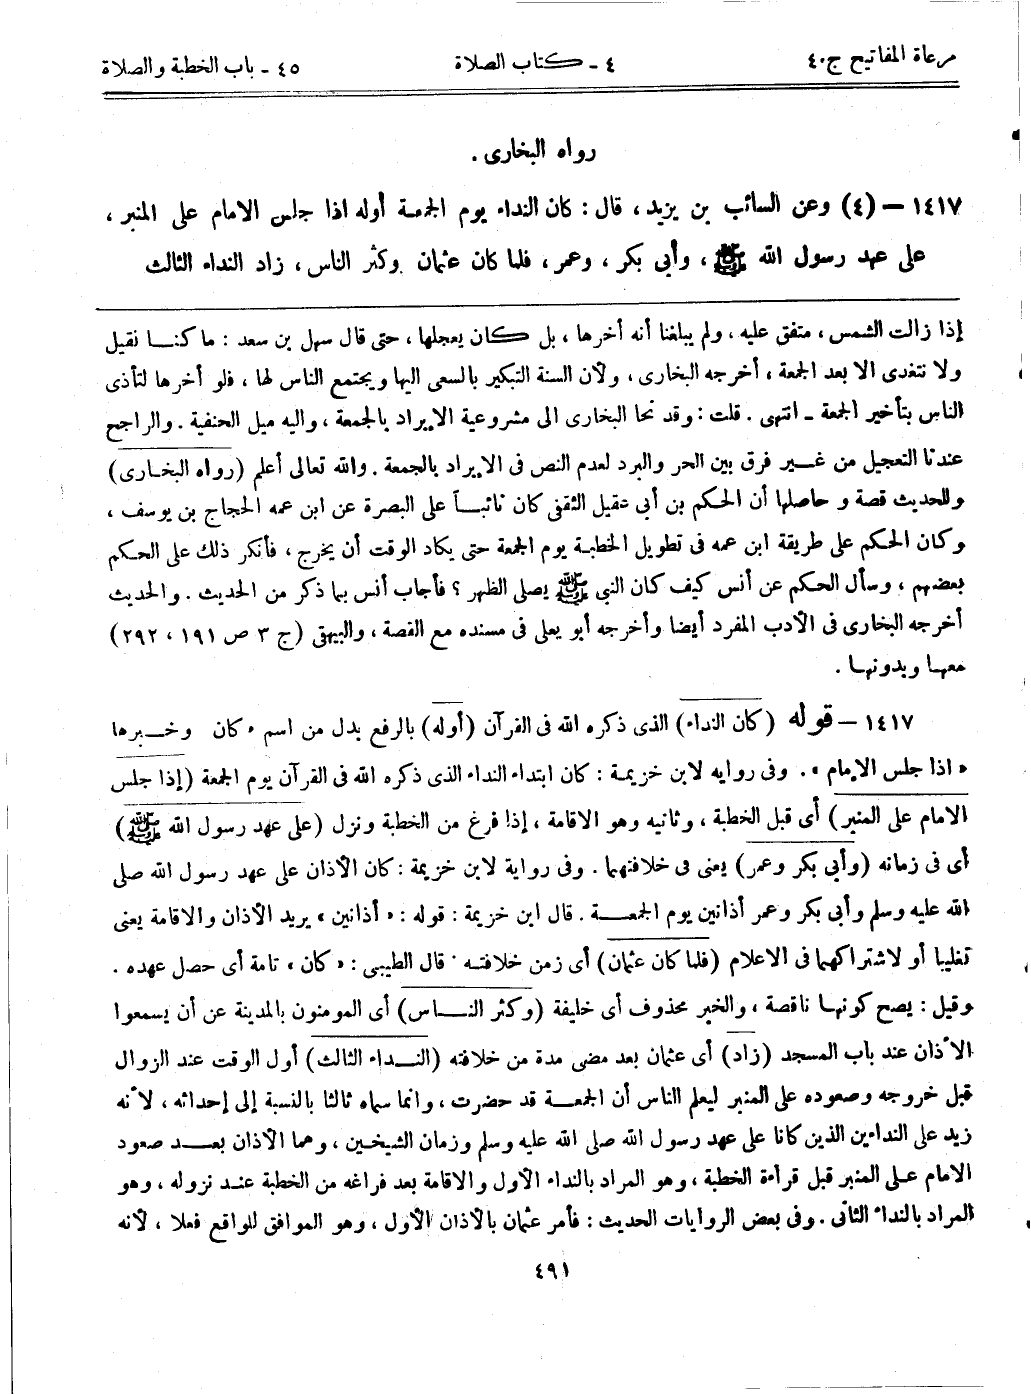 مرعاة المفاتيح ج ٤٠
٤ ـ كتاب الصلاة
٤٥ ـ باب الخطبة والصلاة
رواه البخارى .
١٤١٧ – (٤) وعن السائب بن يزيد ، قال : كان النداء يوم الجمعة أوله اذا جلس الامام على المنبر ،
على عهد رسول الله ﷺ ، وأبي بكر ، وعمر ، فلما كان عثمان وكثر الناس ، زاد النداء الثالث
إذا زالت الشمس ، متفق عليه ، ولم يبلغنا أنه أخرها ، بل كان يعجلها ، حتى قال سهل بن سعد : ما كنا نقيل
ولا نتغدى الا بعد الجمعة ، أخرجه البخارى ، ولأن السنة التبكير بالسعى اليها ويجتمع الناس لها ، فلو أخرها لتأذى
الناس بتأخير الجمعة ـ انتهى . قلت : وقد نحا البخارى الى مشروعية الإيراد بالجمعة ، واليه ميل الحنفية . والراجح
عندنا التعجيل من غير فرق بين الحر والبرد لعدم النص فى الإيراد بالجمعة . والله تعالى أعلم (رواه البخارى)
وللحديث قصة و حاصلها أن الحكم بن أبي عقيل الثقفى كان نائباً على البصرة عن ابن عمه الحجاج بن يوسف ،
وكان الحكم على طريقة ابن عمه فى تطويل الخطبة يوم الجمعة حتى يكاد الوقت أن يخرج ، فأنكر ذلك على الحكم
بعضهم ، وسأل الحكم عن أنس كيف كان النبي ﷺ يصلى الظهر ؟ فأجاب أنس بما ذكر من الحديث . والحديث
أخرجه البخارى فى الأدب المفرد أيضا وأخرجه أبو يعلى فى مسنده مع القصة ، والبيهقى (ج ٣ ص ١٩١ ، ٢٩٢)
معها وبدونها .
١٤١٧ – قوله (كان النداء) الذى ذكره الله فى القرآن (أوله) بالرفع بدل من اسم « كان وخبرها
« اذا جلس الإمام » . وفى روايه لابن خزيمة : كان ابتداء النداء الذى ذكره الله فى القرآن يوم الجمعة (إذا جلس
الامام على المنبر) أى قبل الخطبة ، وثانيه وهو الاقامة ، إذا فرغ من الخطبة ونزل (على عهد رسول الله ﷺ)
أى فى زمانه (وأبي بكر وعمر) يعنى فى خلافتهما . وفى رواية لابن خزيمة : كان الأذان على عهد رسول الله صلى
الله عليه وسلم وأبي بكر وعمر أذانين يوم الجمعة . قال ابن خزيمة : قوله : « أذانين » يريد الأذان والاقامة يعنى
تغليبا أو لاشتراكهما فى الاعلام (فلما كان عثمان) أى زمن خلافته . قال الطيبى : « كان » تامة أى حصل عهده .
وقيل : يصح كونها ناقصة ، والخبر محذوف أى خليفة (وكثر الناس) أى المومنون بالمدينة عن أن يسمعوا
الأذان عند باب المسجد (زاد) أى عثمان بعد مضى مدة من خلافته (النداء الثالث) أول الوقت عند الزوال
قبل خروجه وصعوده على المنبر ليعلم الناس أن الجمعة قد حضرت ، وانما سماه ثالثا بالنسبة إلى إحداثه ، لأنه
زيد على النداءين الذين كانا على عهد رسول الله صلى الله عليه وسلم وزمان الشيخين ، وهما الأذان بعد صعود
الامام على المنبر قبل قراءة الخطبة ، وهو المراد بالنداء الأول والاقامة بعد فراغه من الخطبة عند نزوله ، وهو
المراد بالنداء الثانى . وفى بعض الروايات الحديث : فأمر عثمان بالأذان الأول ، وهو الموافق للواقع فعلا ، لأنه
٤٩١